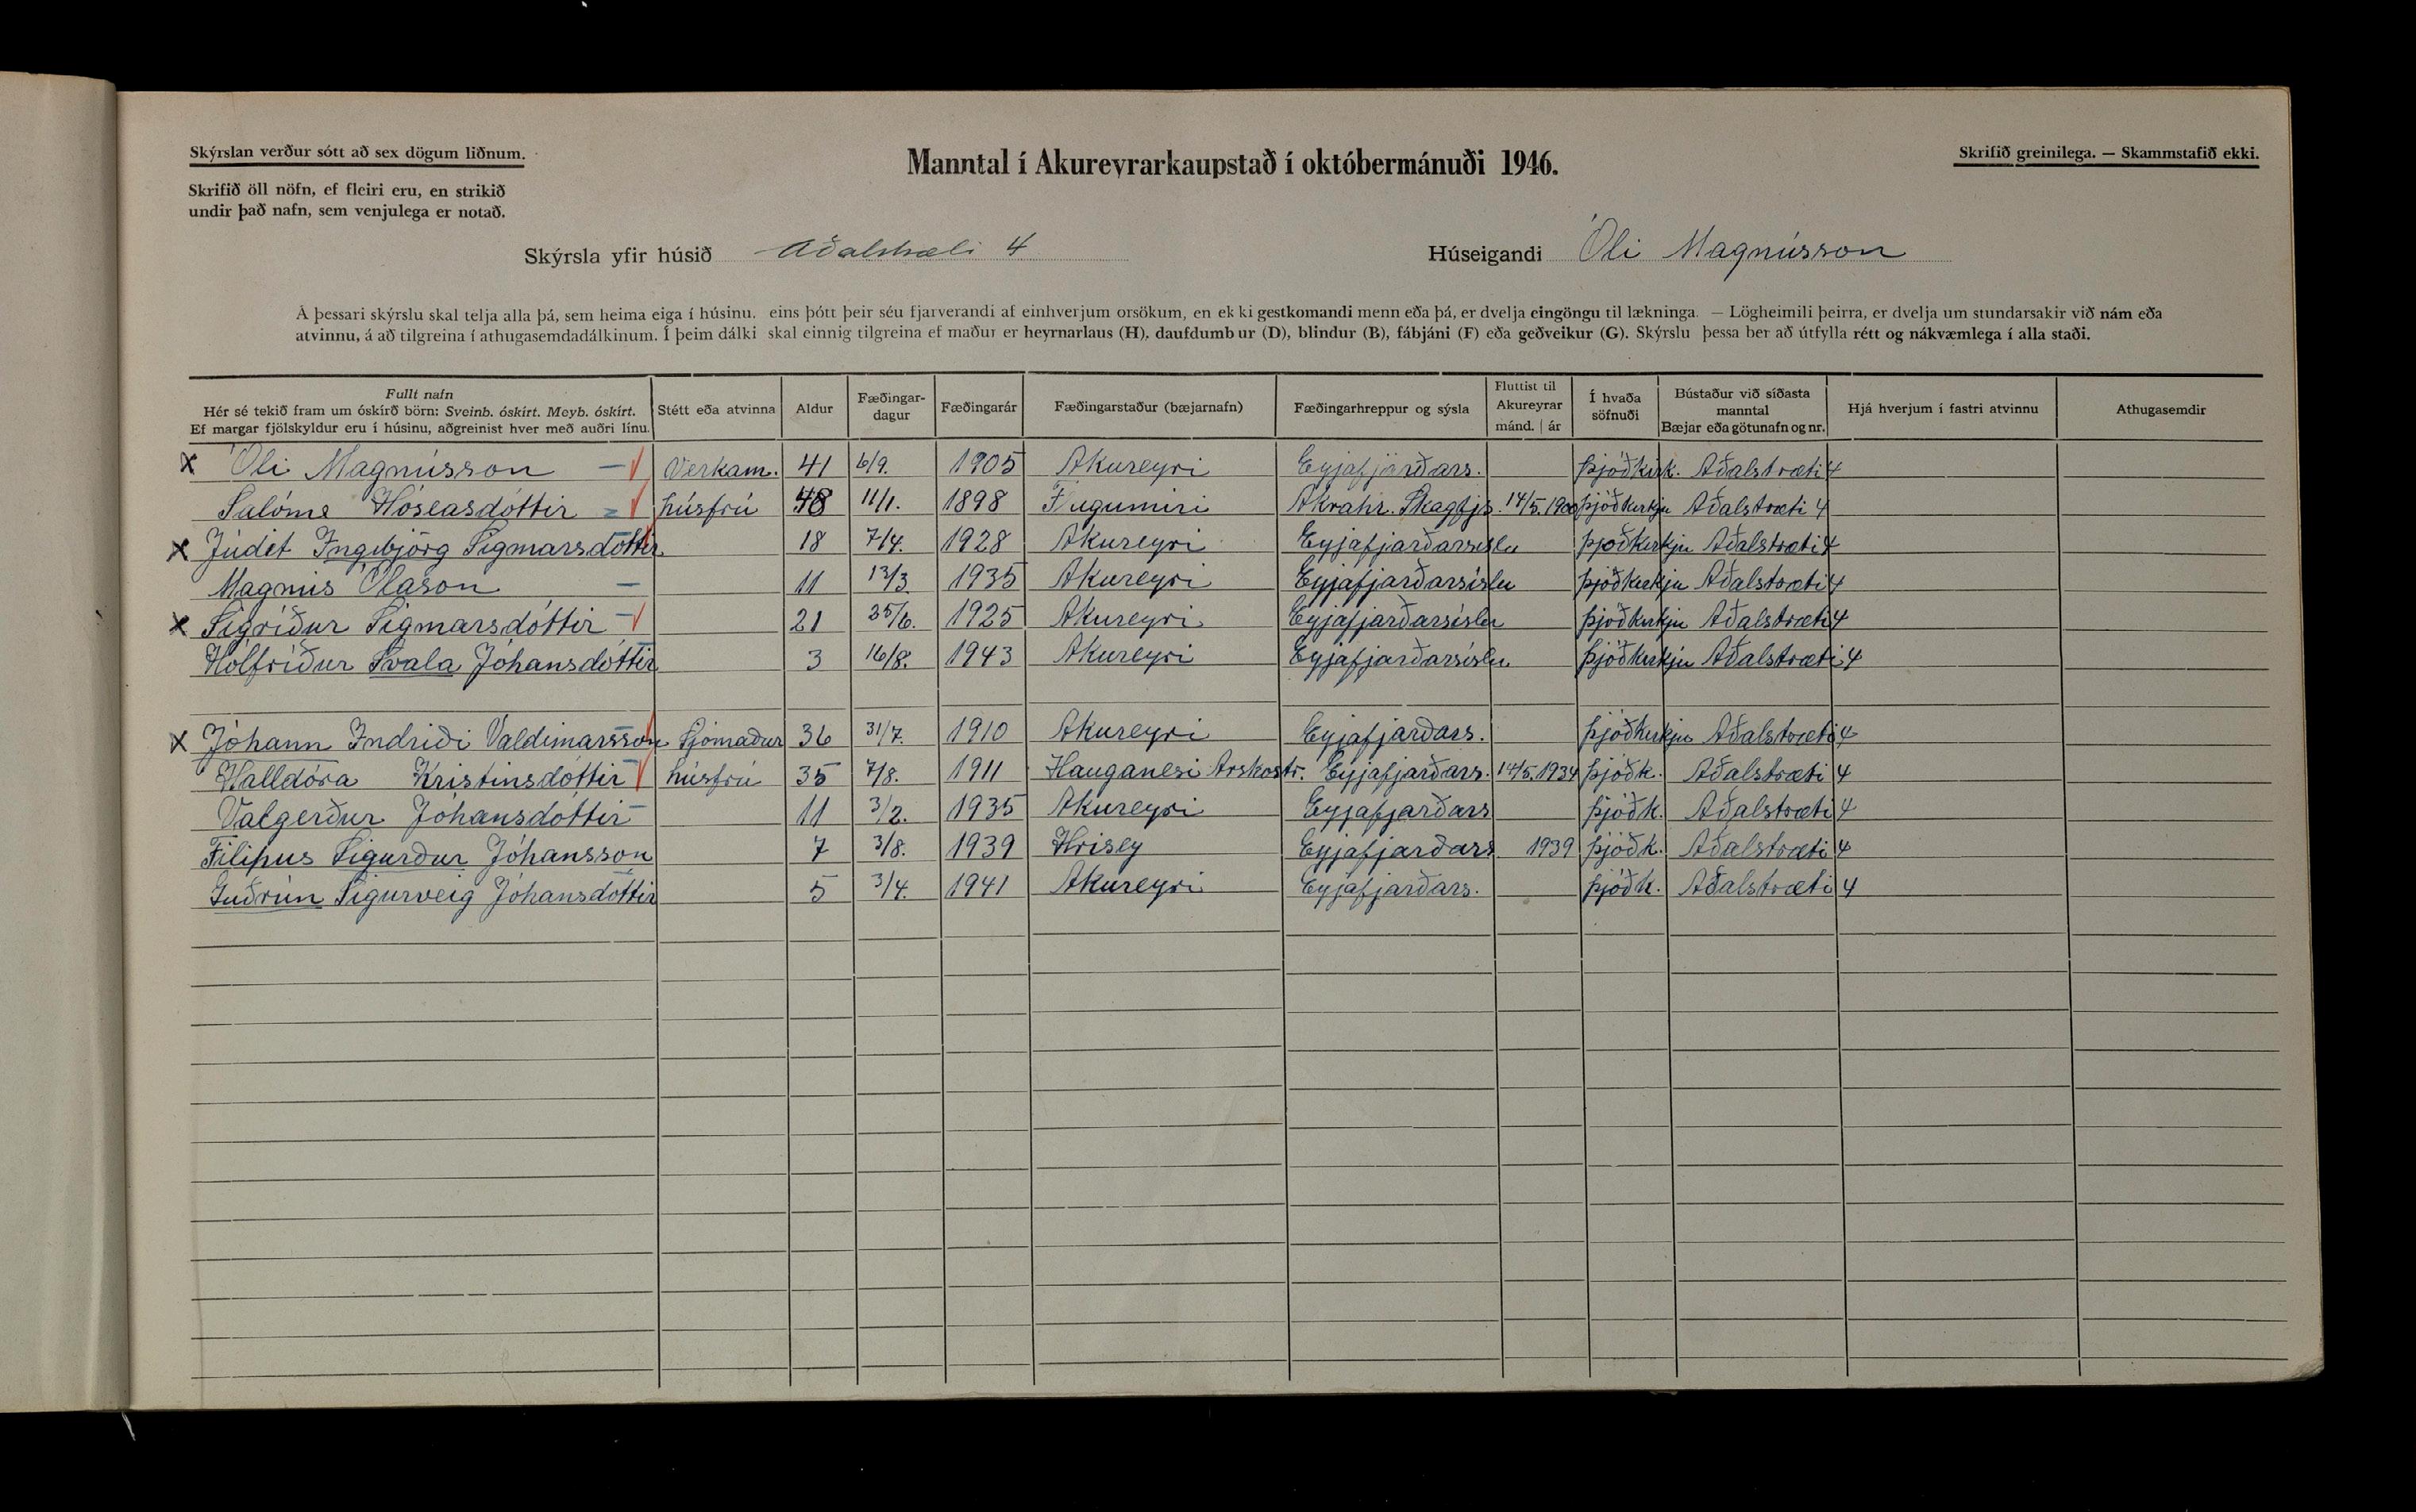 Skýrslan verður sótt að sex dögum liðnum.
Manntal í Akureyrarkaupstað í októbermánuði 1946.
Skrifið greinilega. — Skammstafið ekki.
Skrifið öll nöfn, ef fleiri eru, en strikið
undir það nafn, sem venjulega er notað.
Skýrsla yfir húsið Aðalstræti 4
Húseigandi Óli Magnússon
Á þessari skýrslu skal telja alla þá, sem heima eiga í húsinu. eins þótt þeir séu fjarverandi af einhverjum orsökum, en ekki gestkomandi menn eða þá, er dvelja eingöngu til lækninga. — Lögheimili þeirra, er dvelja um stundarsakir við nám eða
atvinnu, á að tilgreina í athugasemdadálkinum. Í þeim dálki skal einnig tilgreina ef maður er heyrnarlaus (H), daufdumbur (D), blindur (B), fábjáni (F) eða geðveikur (G). Skýrslu þessa ber að útfylla rétt og nákvæmlega í alla staði.
Fullt nafn
Hér sé tekið fram um óskírð börn: Sveinb. óskírt. Meyb. óskírt.
Ef margar fjölskyldur eru í húsinu, aðgreinist hver með auðri línu.
Stétt eða atvinna
Aldur
Fæðingar-
dagur
Fæðingarár
Fæðingarstaður (bæjarnafn)
Fæðingarhreppur og sýsla
Fluttist til
Akureyrar
mánd. | ár
Í hvaða
söfnuði
Bústaður við síðasta
manntal
Bæjar eða götunafn og nr.
Hjá hverjum í fastri atvinnu
Athugasemdir
x Óli Magnússon — Verkam. 41 6/9. 1905 Akureyri Eyjafjarðars. þjóðkirk. Aðalstræti 4
Salóme Hóseasdóttir = húsfrú 48 11/1. 1898 Flugumiri Akrahr. Skagfjs. 14/5. 1900 þjóðkirkju Aðalstræti 4
x Júdit Ingibjörg Sigmarsdóttir 18 7/4. 1928 Akureyri Eyjafjarðarsíslu þjóðkirkju Aðalstræti 4
Magnús Ólason — 11 13/3 1935 Akureyri Eyjafjarðarsíslu þjóðkirkju Aðalstræti 4
x Sigríður Sigmarsdóttir — 21 25/6. 1925 Akureyri Eyjafjarðarsíslu þjóðkirkju Aðalstræti 4
Hólfríður Svala Jóhansdóttir 3 16/8. 1943 Akureyri Eyjafjarðarsíslu þjóðkirkju Aðalstræti 4
x Jóhann Indriði Valdimarsson Sjómaður 36 31/7. 1910 Akureyri Eyjafjarðars. þjóðkirkju Aðalstræti 4
Halldóra Kristinsdóttir húsfrú 35 7/8. 1911 Hauganesi Arskostr. Eyjafjarðars. 14/5. 1934 þjóðk. Aðalstræti 4
Valgerður Jóhansdóttir 11 3/2. 1935 Akureyri Eyjafjarðars þjóðk. Aðalstræti 4
Filipus Sigurður Jóhansson 7 3/8. 1939 Hrisey Eyjafjarðars 1939 þjóðk. Aðalstræti 4
Guðrún Sigurveig Jóhansdóttir 5 3/4. 1941 Akureyri Eyjafjarðars. þjóðk. Aðalstræti 4